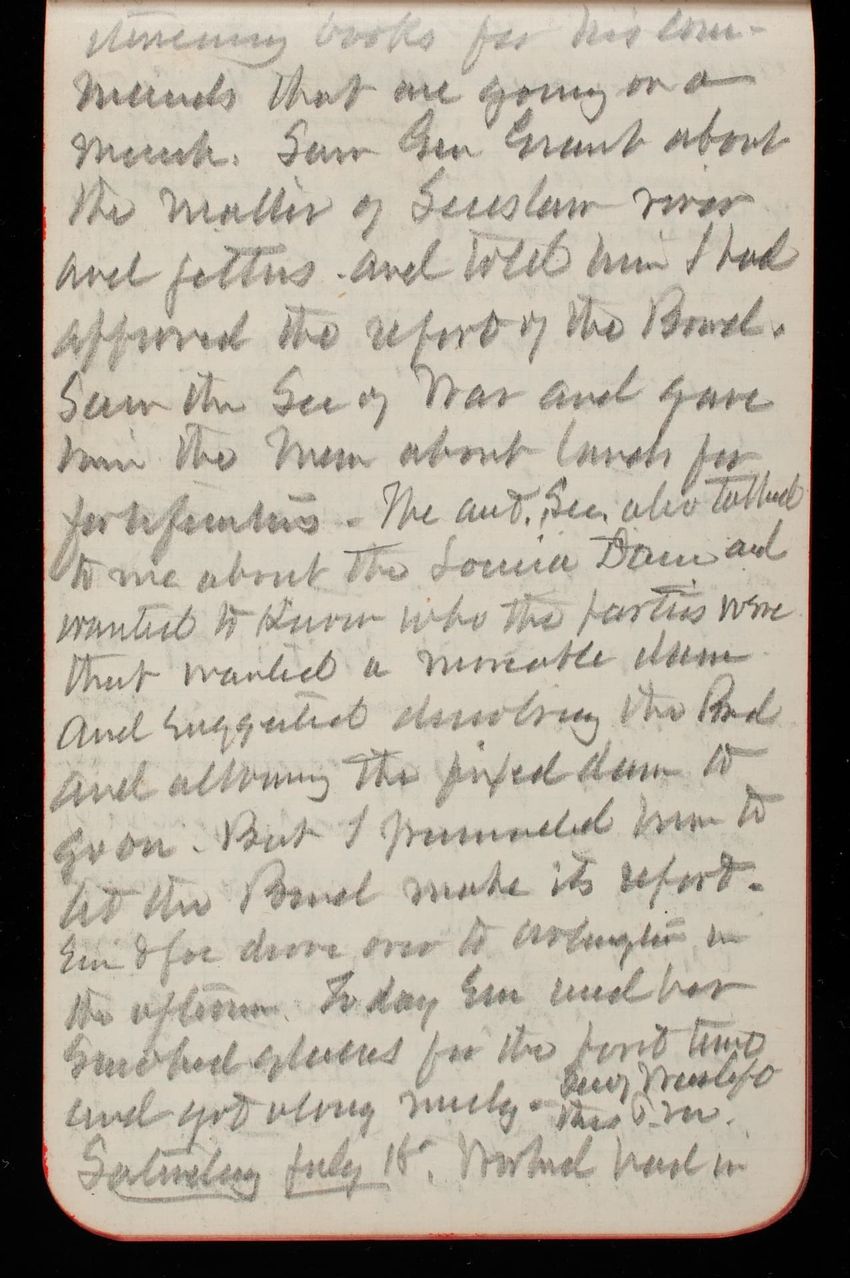 itinerary books for his com-
mands that are going on a
march. Saw Gen Grant about
the matter of Siuslaw river
and jetties. and told him I had
approved the report of the Board.
Saw the Sec of War and gave
him the Mem about lands for
fortifications. The Asst. Sec. also talked
to me about the Louisa Dam and
wanted to know who the parties were
that wanted a movable dam
and suggested dissolving the Bod
and allowing the fixed dam to
go on. But I persuaded him to
let the Board make its report.
Em & Joe drove over to Arlington in
the afternoon. To day Em used her
smoked glasses for the first time
and got along nicely. Secy
this P.M.
Saturday July 18. Worked hard in